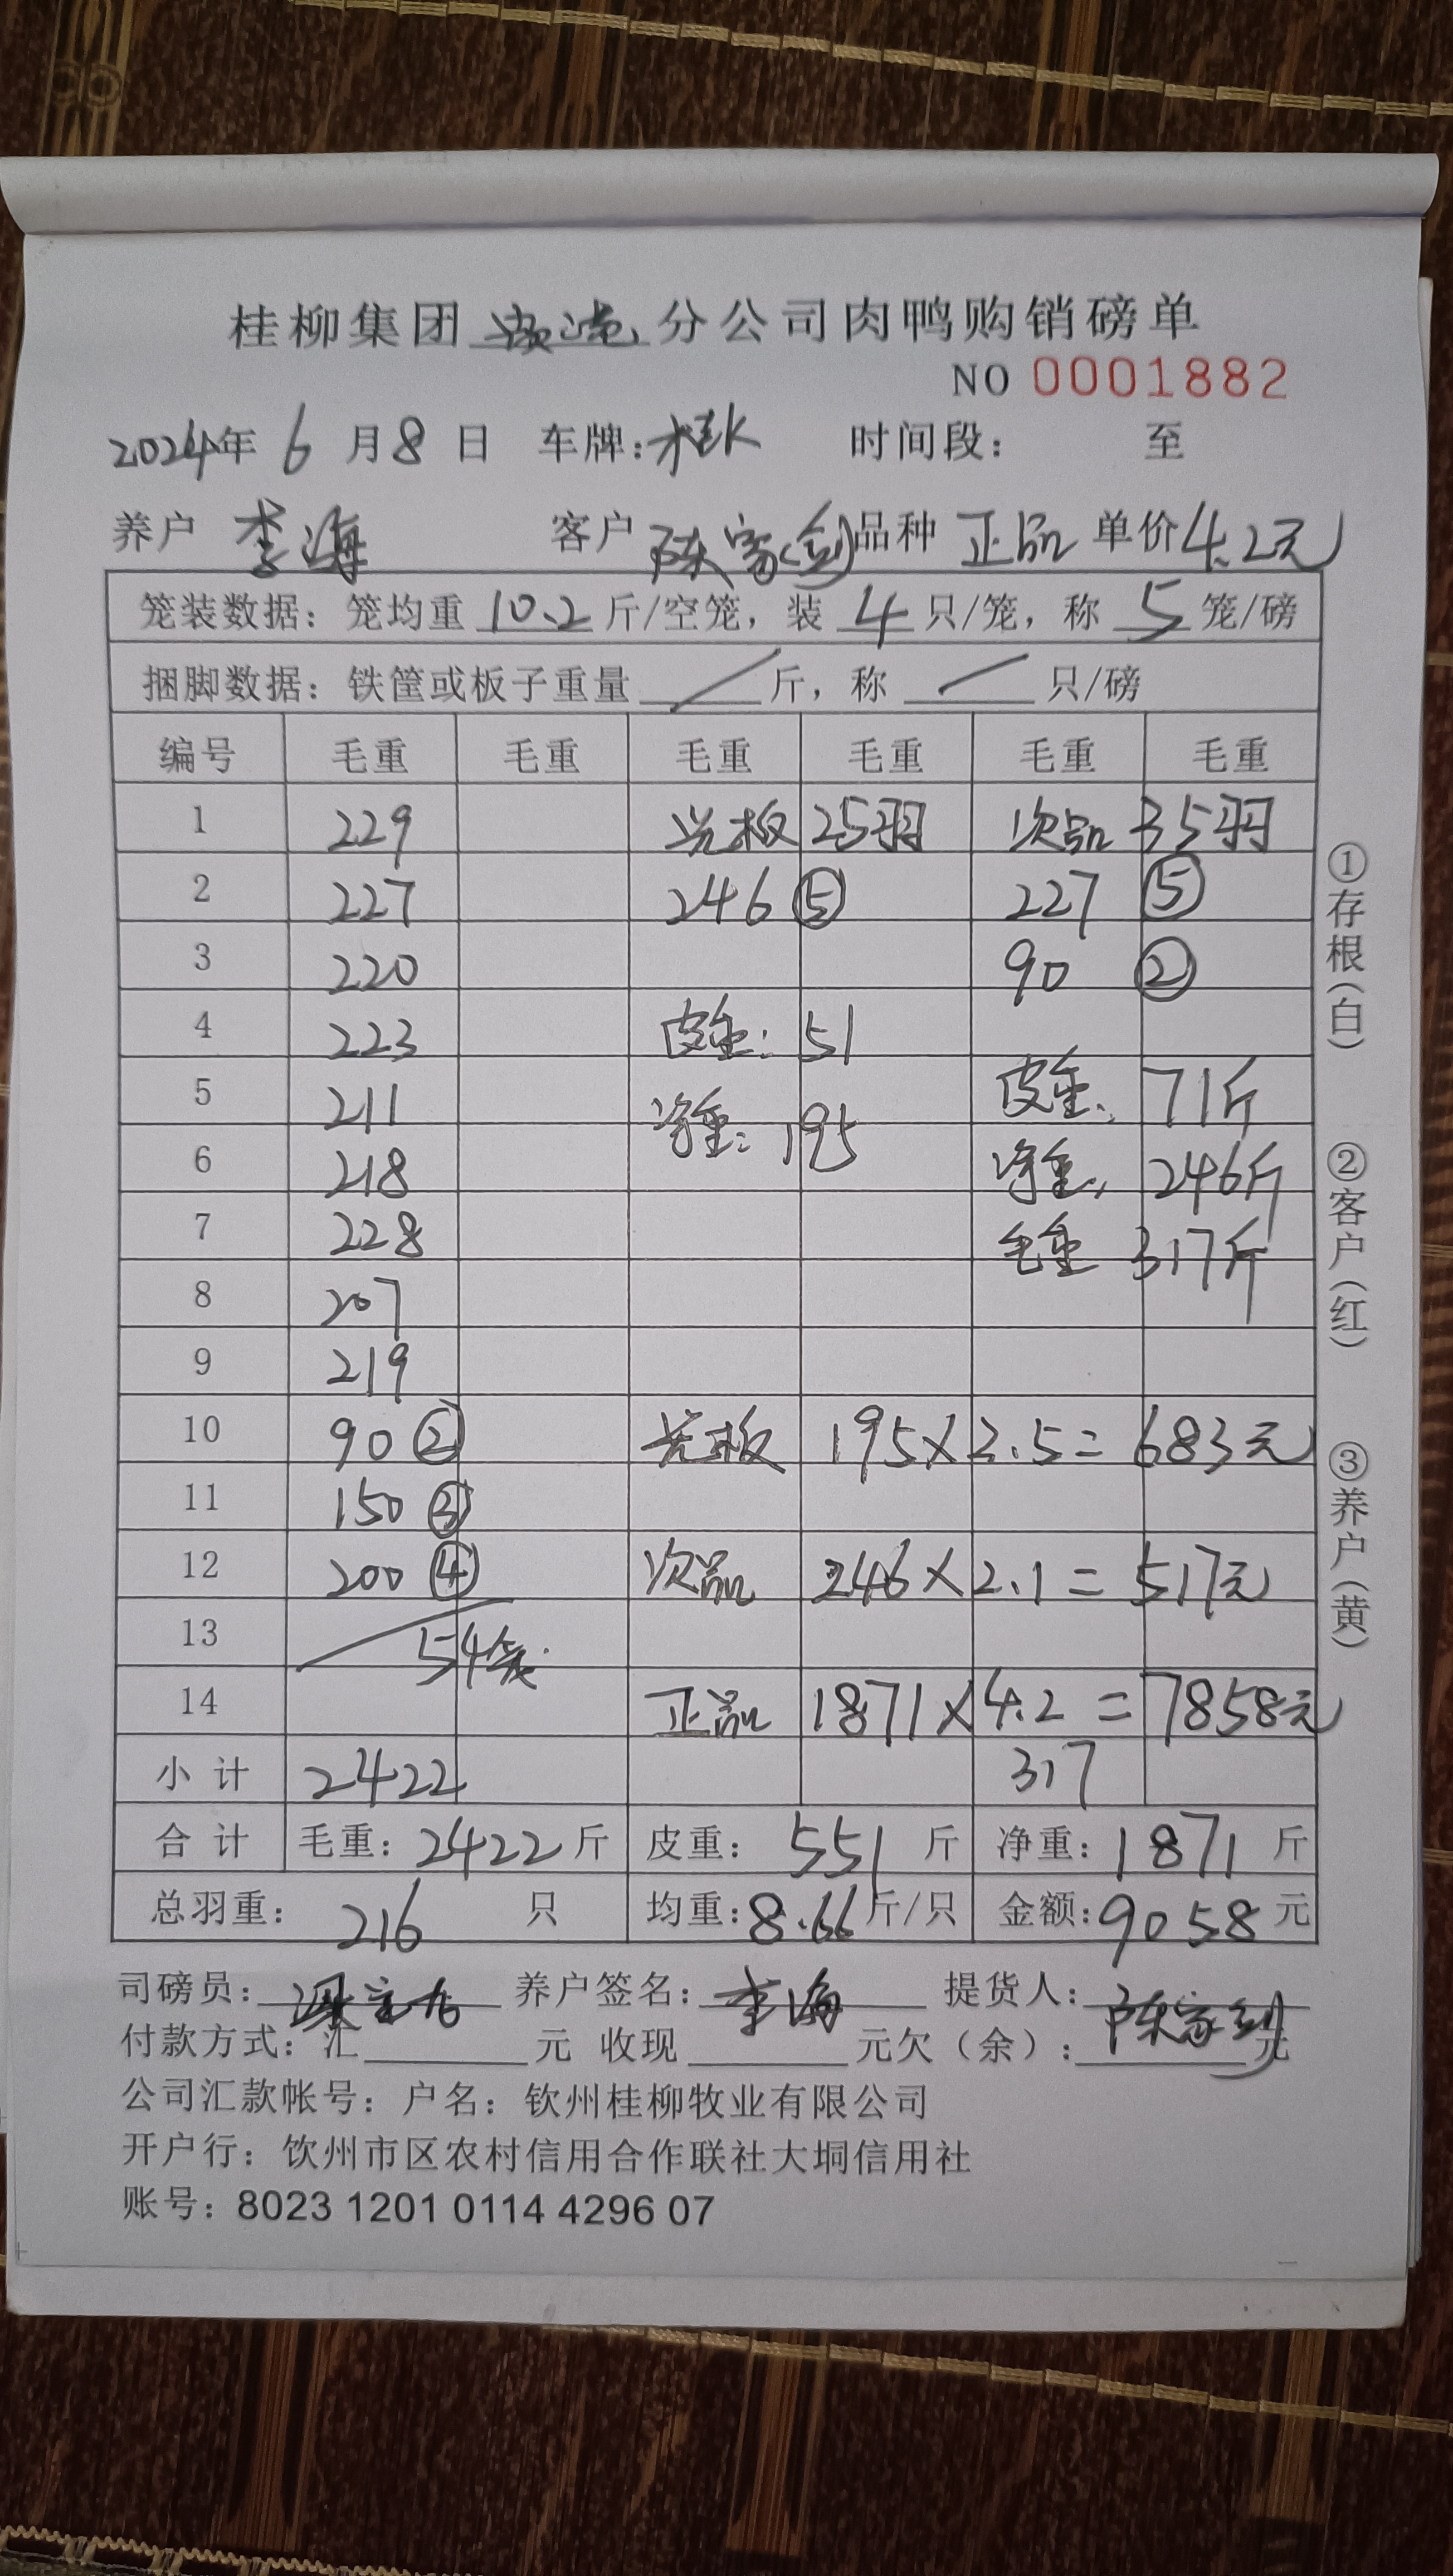 桂柳集团 分公司肉鸭购销磅单
NO 0001882
2024年 6 月 8 日 车牌： 时间段： 至
养户 李海 客户 陈家(剑) 品种 正品 单价 4.2元
笼装数据：笼均重 10.2 斤/空笼，装 4 只/笼，称 5 笼/磅
捆脚数据：铁筐或板子重量 / 斤，称 / 只/磅
编号 毛重 毛重 毛重 毛重 毛重 毛重
1 229 光板 25羽 次品 35羽
2 227 246 ⑤ 227 ⑤
3 220 90 ②
4 223 皮重：51
5 211 皮重： 71斤
6 218 净重：195 净重： 246斤
7 228 毛重 317斤
8 207
9 219
10 90 ② 光板 195×2.5=683元
11 150 ③
12 200 ④ 次品 246×2.1=517元
13 54笼
14 正品 1871×4.2=7858元
小计 2422 317
合计 毛重：2422斤 皮重：551斤 净重：1871斤
总羽重：216只 均重：8.66斤/只 金额：9058元
司磅员： 养户签名：李海 提货人：陈家剑
付款方式：汇 元 收现 元欠（余）： 元
公司汇款帐号：户名：钦州桂柳牧业有限公司
开户行：饮州市区农村信用合作联社大垌信用社
账号：8023 1201 0114 4296 07
①存根（白）
②客户（红）
③养户（黄）